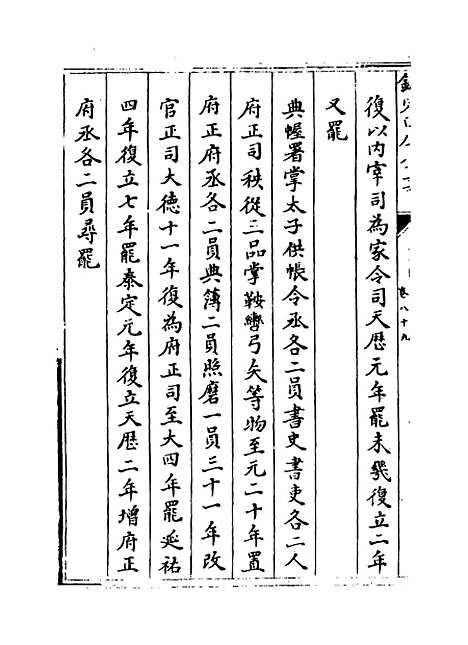 復以内宰司為家令司天厯元年罷未幾復立二年
又罷
典幄署掌太子供帳令丞各二員書史書吏各二人
府正司秩從三品掌鞍轡弓矢等物至元二十年置
府正府丞各二員典簿二員照磨一員三十一年改
官正司大徳十一年復為府正司至大四年罷延祐
四年復立七年罷泰定元年復立天厯二年增府正
府丞各二員尋罷
卷八十九